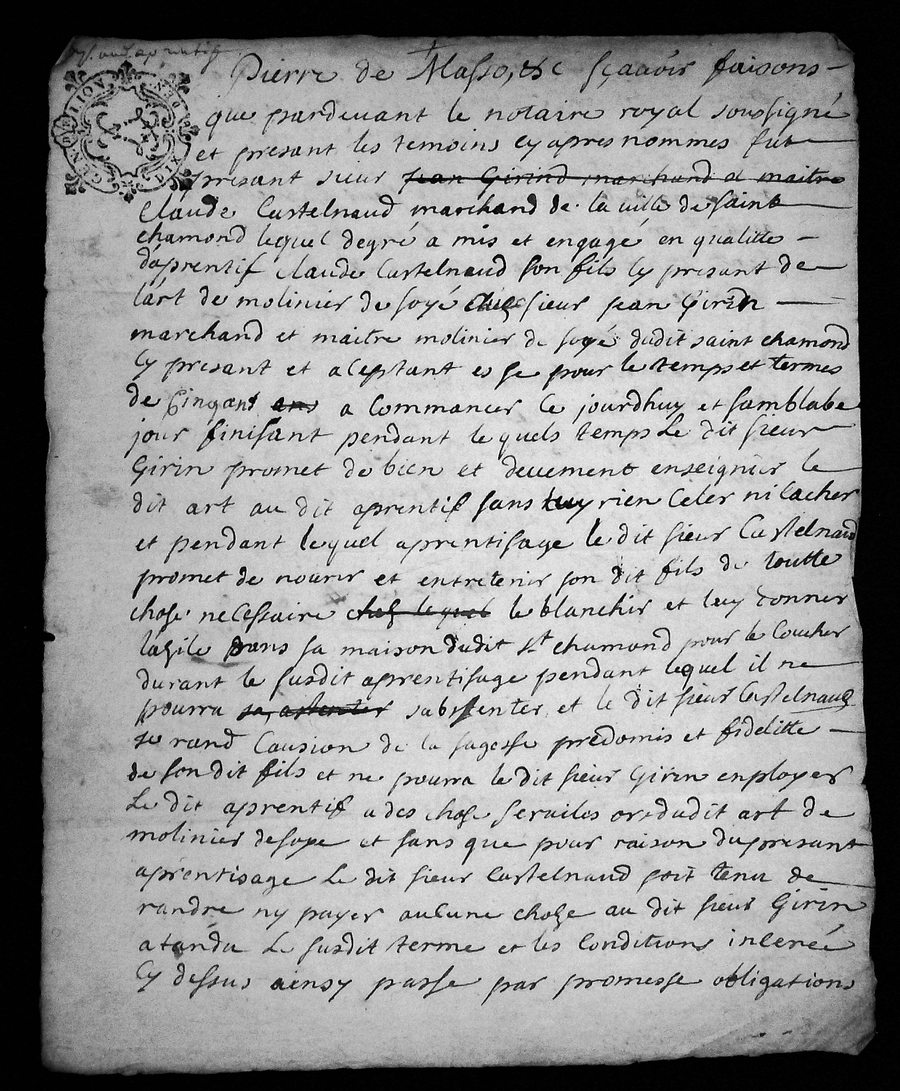 GEN. DE LION
DIX DEN
Pierre de Masso, &c sçavoir faisons
que pardevant le notaire royal soussigné
et presant les temoins cy apres nommés fut
presant sieur Jean Girind marchand et maitre
Claude Castelnaud marchand de la ville de saint
chamond lequel degré a mis et engagé en qualitte
d'aprentif Claude Castelnaud son fils cy presant de
lart de molinier de soyé chez sieur jean Girin
marchand et maitre molinier de soyé dudit saint chamond
cy presant et aceptant et ce pour le temps et termes
de cinq ans ans a commancer ce jourdhuy et samblabe
jour finisant pendant lequels temps Le dit sieur
Girin promet de bien et deuement enseigner le
dit art au dit aprentif sans luy rien celer ni cacher
et pendant lequel aprentisage le dit sieur Castelnaud
promet de nourir et entretenir son dit fils de toutte
chose necessaire chez lequel le blanchir et luy donner
lazile dans sa maison dudit st chamond pour le coucher
durant le susdit aprentisage pendant lequel il ne
pourra sa, absenter sabsenter et le dit sieur Castelnaud
se rand causion de la sagesse predomis et fidelitte
de son dit fils et ne pourra le dit sieur Girin enployer
Le dit aprentif a des chose serviles ors dudit art de
molinier de soye et sans que pour raison du presant
aprentisage Le dit sieur Castelnaud soit tenu de
randre ny payer aucune choze au dit sieur Girin
atandu Le susdit terme et les conditions inceréé
cy dessus ainsy passe par promesse obligations